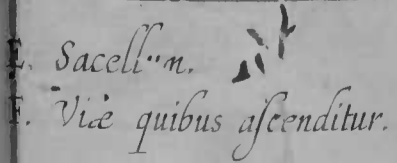 E. Sacellum.
F. Viæ quibus ascenditur.